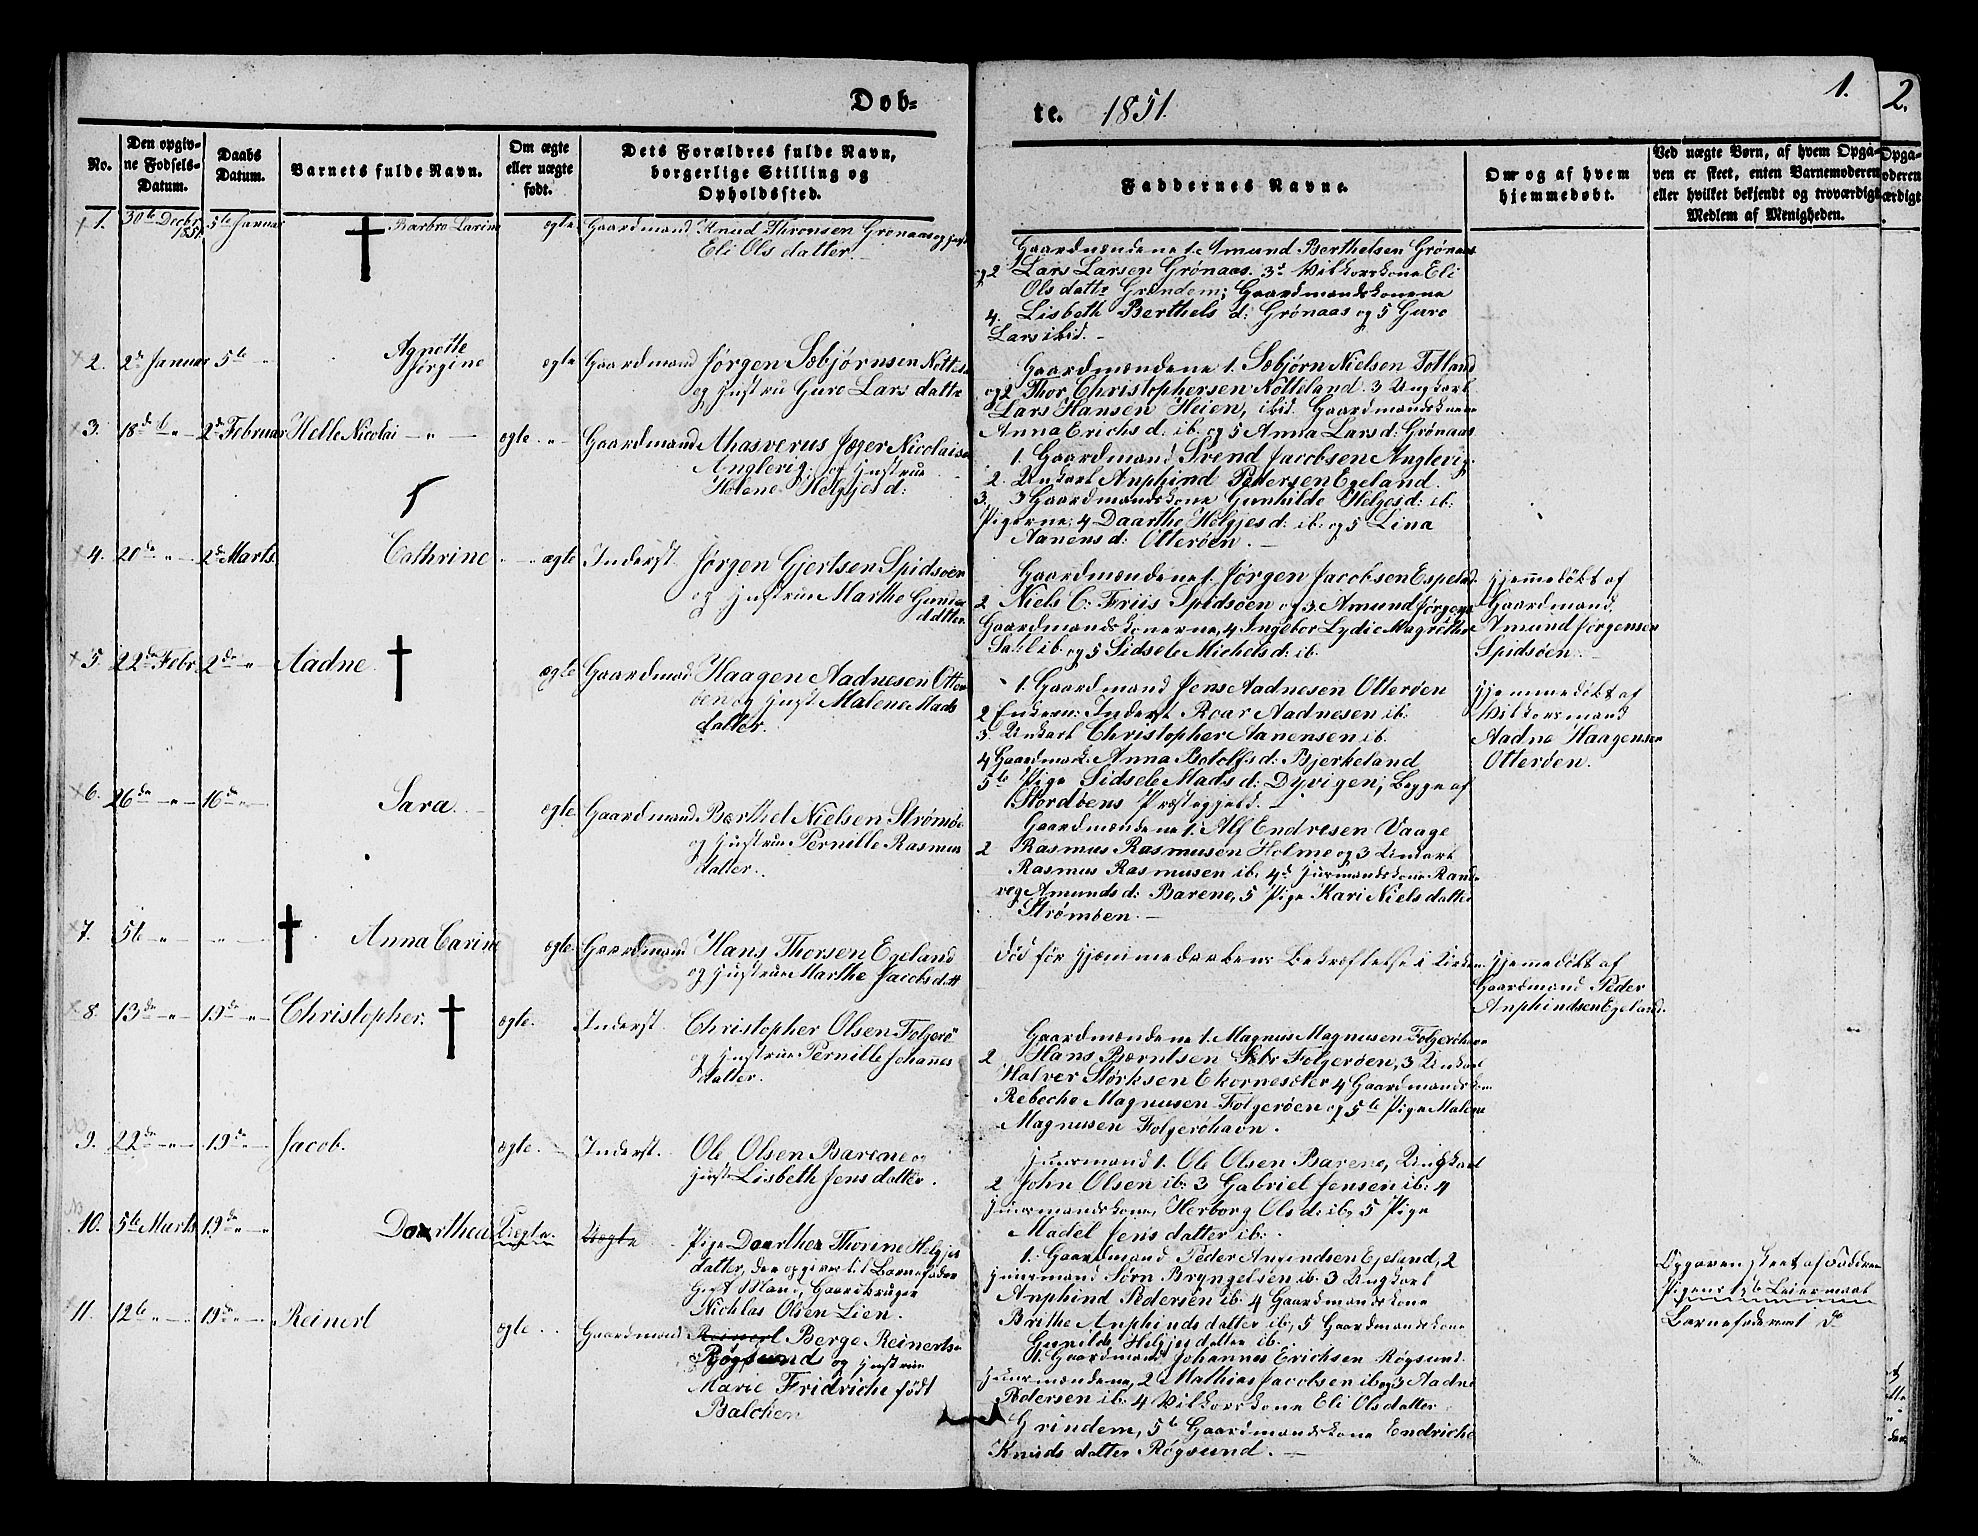 Døb-
te. 1851.
1.
2.
No.
Den opgiv-
ne Fødsels-
Datum.
Daabs
Datum.
Barnets fulde Navn.
Om ægte
eller uægte
født.
Dets Forældres fulde Navn,
borgerlige Stilling og
Opholdssted.
Faddernes Navne.
Om og af hvem
hjemmedøbt.
Ved uægte Børn, af hvem Opga-
ven er skeet, enten Barnemoderen
eller hvilket bekjendt og troværdigt
Medlem af Menigheden.
1. 30te Decbr 1851. 5te Januar Barbro Larine ægte Gaardmand Knud Thronsen Grønaas og
Eli Olsdatter.
Gaardmændene 1. Amund Berthelsen Grønaas
og 2 Lars Larsen Grønaas. 3 Vilkorskone Eli
Olsdattr Grindem; Gaardmandskonene
4. Lisbeth Berthels d: Grønaas og 5 Guro
Lars ibid. -
2. 2de Januar 5te Agnette
Jørgine ægte Gaardmand Jørgen Sæbjørnsen
og Hustrue Guro Larsdatter
Gaardmændene 1. Sæbjørn Nielsen Totland
og 2 Thor Christophersen Notteland. 3 Ungkarl
Lars Hansen Heien, ibid. Gaardmandskone
Anna Erichs d: ib. og 5 Anna Lars d: Grønaas
3. 18de 2de Februar Helle Nicolai ægte Gaardmand Ahasverus Jæger Nicolaisen
Anglevig og Hustrue
Helene Helgjes d:
1. Gaardmand Svend Jacobsen Anglevig
2. Unkarl Anphind Pedersen Egeland.
3. 3 Gaardmandskone Gunhilde Helgjes d: ib.
Pigerne: 4 Daarthe Helgjes d: ib: og 5 Lina
Aanens d: Otterøen. -
4. 20de 2de Marts. Cathrine ægte Inderst. Jørgen Gjertsen Spidsøen
og Hustrue Marthe
datter.
Gaardmændene 1. Jørgen Jacobsen Espeland
2 Niels C: Friis Spidsøen og 3 Amund Jørgens
Gaardmandskonerne 4 Ingebor Lydie Magrethe
Sahl ib. og 5 Sidsele Michels d: ib.
Hjemmedøbt af
Gaardmand
Amund Jørgensen
Spidsøen.
5. 22de Febr. 2de Aadne ægte Gaardmand Haagen Aadnesen Otter-
øen og Hust. Malene Mads
datter.
1. Gaardmand Jens Aadnesen Otterøen
2 Inderst Roar Aadnesen ib.
3. Unkarl Christopher Aanensen ib.
4 Gaardmsk. Anna Botolfs d: Bjerkeland
5te Pige Sidsele Mads d: Dyvigen; Begge af
Stordøens Præstegjeld. -
Hjemmedøbt af
Vilkorsmand
Aadne Haagensen
Otterøen.
6. 26de 16de Sara. ægte Gaardmand Berthel Nielsen Strømøe
og Hustrue Pernille Rasmus
datter.
Gaardmændene 1. Alf Endresen Vaage
2 Rasmus Rasmusen Holme og 3 Unkarl
Rasmus Rasmusen ib, 4de Huusmandskone Rand-
veg Amunds d: Barene, 5 Pige Kari Nielsdatter
Strømøen. -
7. 5te Anna Carine ægte Gaardmand Hans Thorsen Egeland
og Hustrue Marthe Jacobs d:
Død før Hjemmedaabens Bekræftelse i Kirken
Hjemmedøbt af
Gaardmand Peder
Anphindsen Egeland.
8. 13de 19de Christopher. ægte. Inderst. Christopher Olsen Folgerø
og Hustrue Pernille Johannes
datter.
Gaardmændene 1. Magnus Magnusen Folgerøhavn
2 Hans Berntsen Folgerøen, 3 Unkarl
Halver Størksen Ekornesæter 4 Gaardmandskone
Rebecha Magnusen Folgerøen og 5te Pige Malene
Magnusen Folgerøhavn.
9. 22de 19de Jacob. ægte. Inderst. Ole Olsen Barene og
Hust. Lisbeth Jensdatter.
Huusmand 1. Ole Olsen Barene, Ungkarl
2 John Olsen ib: 3 Gabriel Jensen ib: 4
Huusmandskone, Herborg Ols d: ib, 5 Pige
Madel Jensdatter ib:
10. 5te Marts 19de Daarthea Uægte. Uægte Pige Daarthea Thorine Helgjes
datter, der opgiver til Barnefader
Gift Mand, Gaardbruger
Nichlas Olsen Lien.
1. Gaardmand Peder Anfindsen Egeland, 2
Huusmand Sørn Bryngelsen ib. 3 Ungkarl
Anphind Pedersen ib: 4 Gaardmandskone
Brithe Anphindsdatter ib, 5 Gaardmandskone
Gunilde Helgjesdatter ib.
Opgaven skeet af Fadderne
Pigens 1ste Leiermaal
Barnefaderens 1 Do
11. 12te 19de Reinert ægte. Gaardmand Reinert Berge Reinertsen
Røgsund og Hustrue
Marie Fridriche født
Balchen
1. Gaardmand Johannes Erichsen Røgsund.
Huusmændene, 2 Mathias Jacobsen ib. og 3 Aadne
Pedersen ib. 4 Vilkorskone Eli Olsdatter
Grindem, 5te Gaardmandskone Endriche
Knudsdatter Røgsund. -